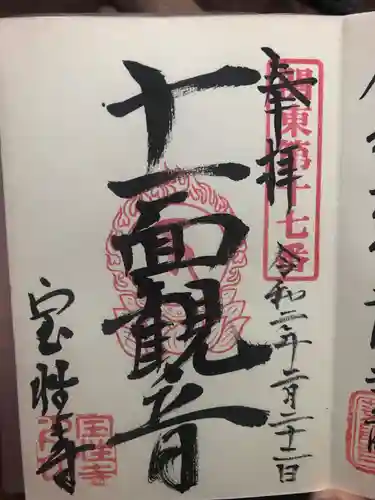 奉拝
関東第十七番
令和二年二月二十二日
十一面観音
宝生寺